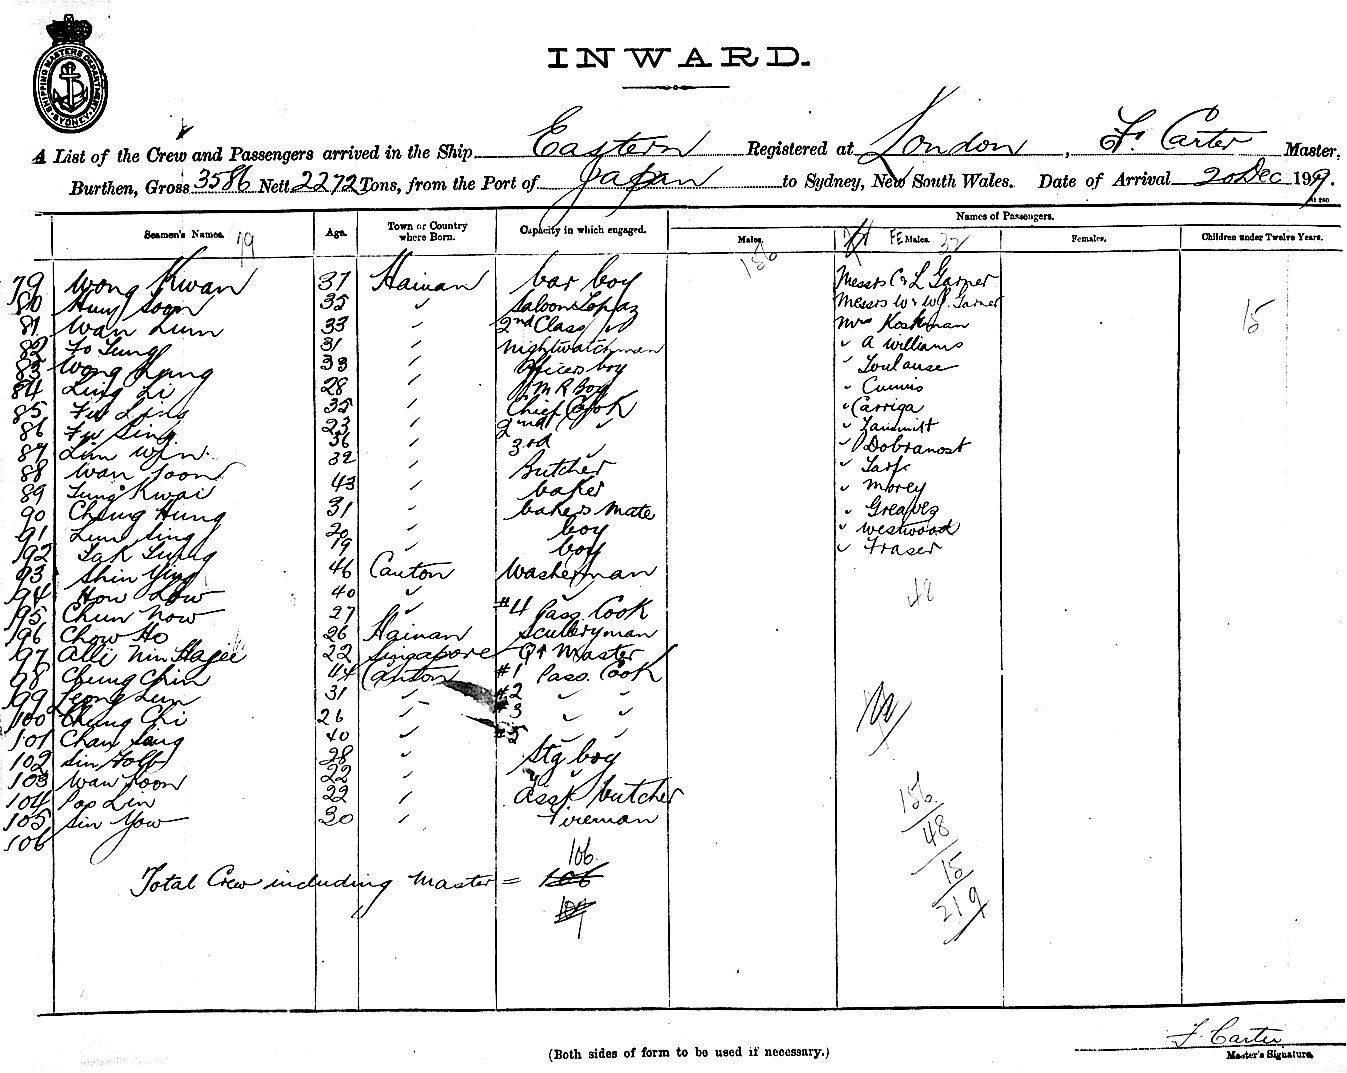 INWARD.
SHIPPING MASTERS DEPARTMENT SYDNEY
A List of the Crew and Passengers arrived in the Ship Eastern Registered at London, F. Carter Master,
Burthen, Gross 3586 Nett 2272 Tons, from the Port of Japan to Sydney, New South Wales. Date of Arrival 20 Dec 19
Names of Passengers.
Seamen's Names. 79 Age. Town or Country where Born. Capacity in which engaged. Males. FEMales. 32 Females. Children under Twelve Years.
156
15
79 Wong Kwan 37 Hainan bar boy Messrs C & L Garner
80 Hung Soon 35 " Saloon Messrs W & W Garner
81 Wan Lum 33 " 2nd Class Mrs Koshman
82 Fo Tung 31 " Nightwatchman " A Williams
83 Wong 33 " Officers boy " Toulouse
84 Ling Li 28 " M R Boy "
85 Fu Ling 35 " Chief Cook " Carriga
86 Fu Sing 23 " 2nd " "
87 Lim Win 36 " 3rd " " Dobranost
88 Wan Soon 32 " Butcher "
89 Tung Kwai 43 " baker " Morey
90 Chung Hung 31 " bakers mate " Greaves
91 Lum Sing 20 " boy " Westwood
92 Tak Tung 19 " boy " Fraser
93 Shin Ying 46 Canton Washerman
94 How Low 40 " "
48
95 Chun Now 27 " #4 Pass. Cook
96 Chow Ho 26 Hainan Sculleryman
97 Alli Nin Hagee 22 Singapore Qr Master
98 Cheung Chin 44 Canton #1 Pass. Cook
99 Leong Lun 31 " #2 " "
100 Chung Chi 26 " #3 " "
101 Chan Sang 40 " #5 " "
102 Sin 28 " Stg boy
103 Wan Soon 22 " "
104 Pop Lin 22 " Asst. butcher
105 Sin Yow 30 " Fireman
106
156
48
15
219
106
Total Crew including Master = 106
109
F. Carter
Master's Signature.
(Both sides of form to be used if necessary.)